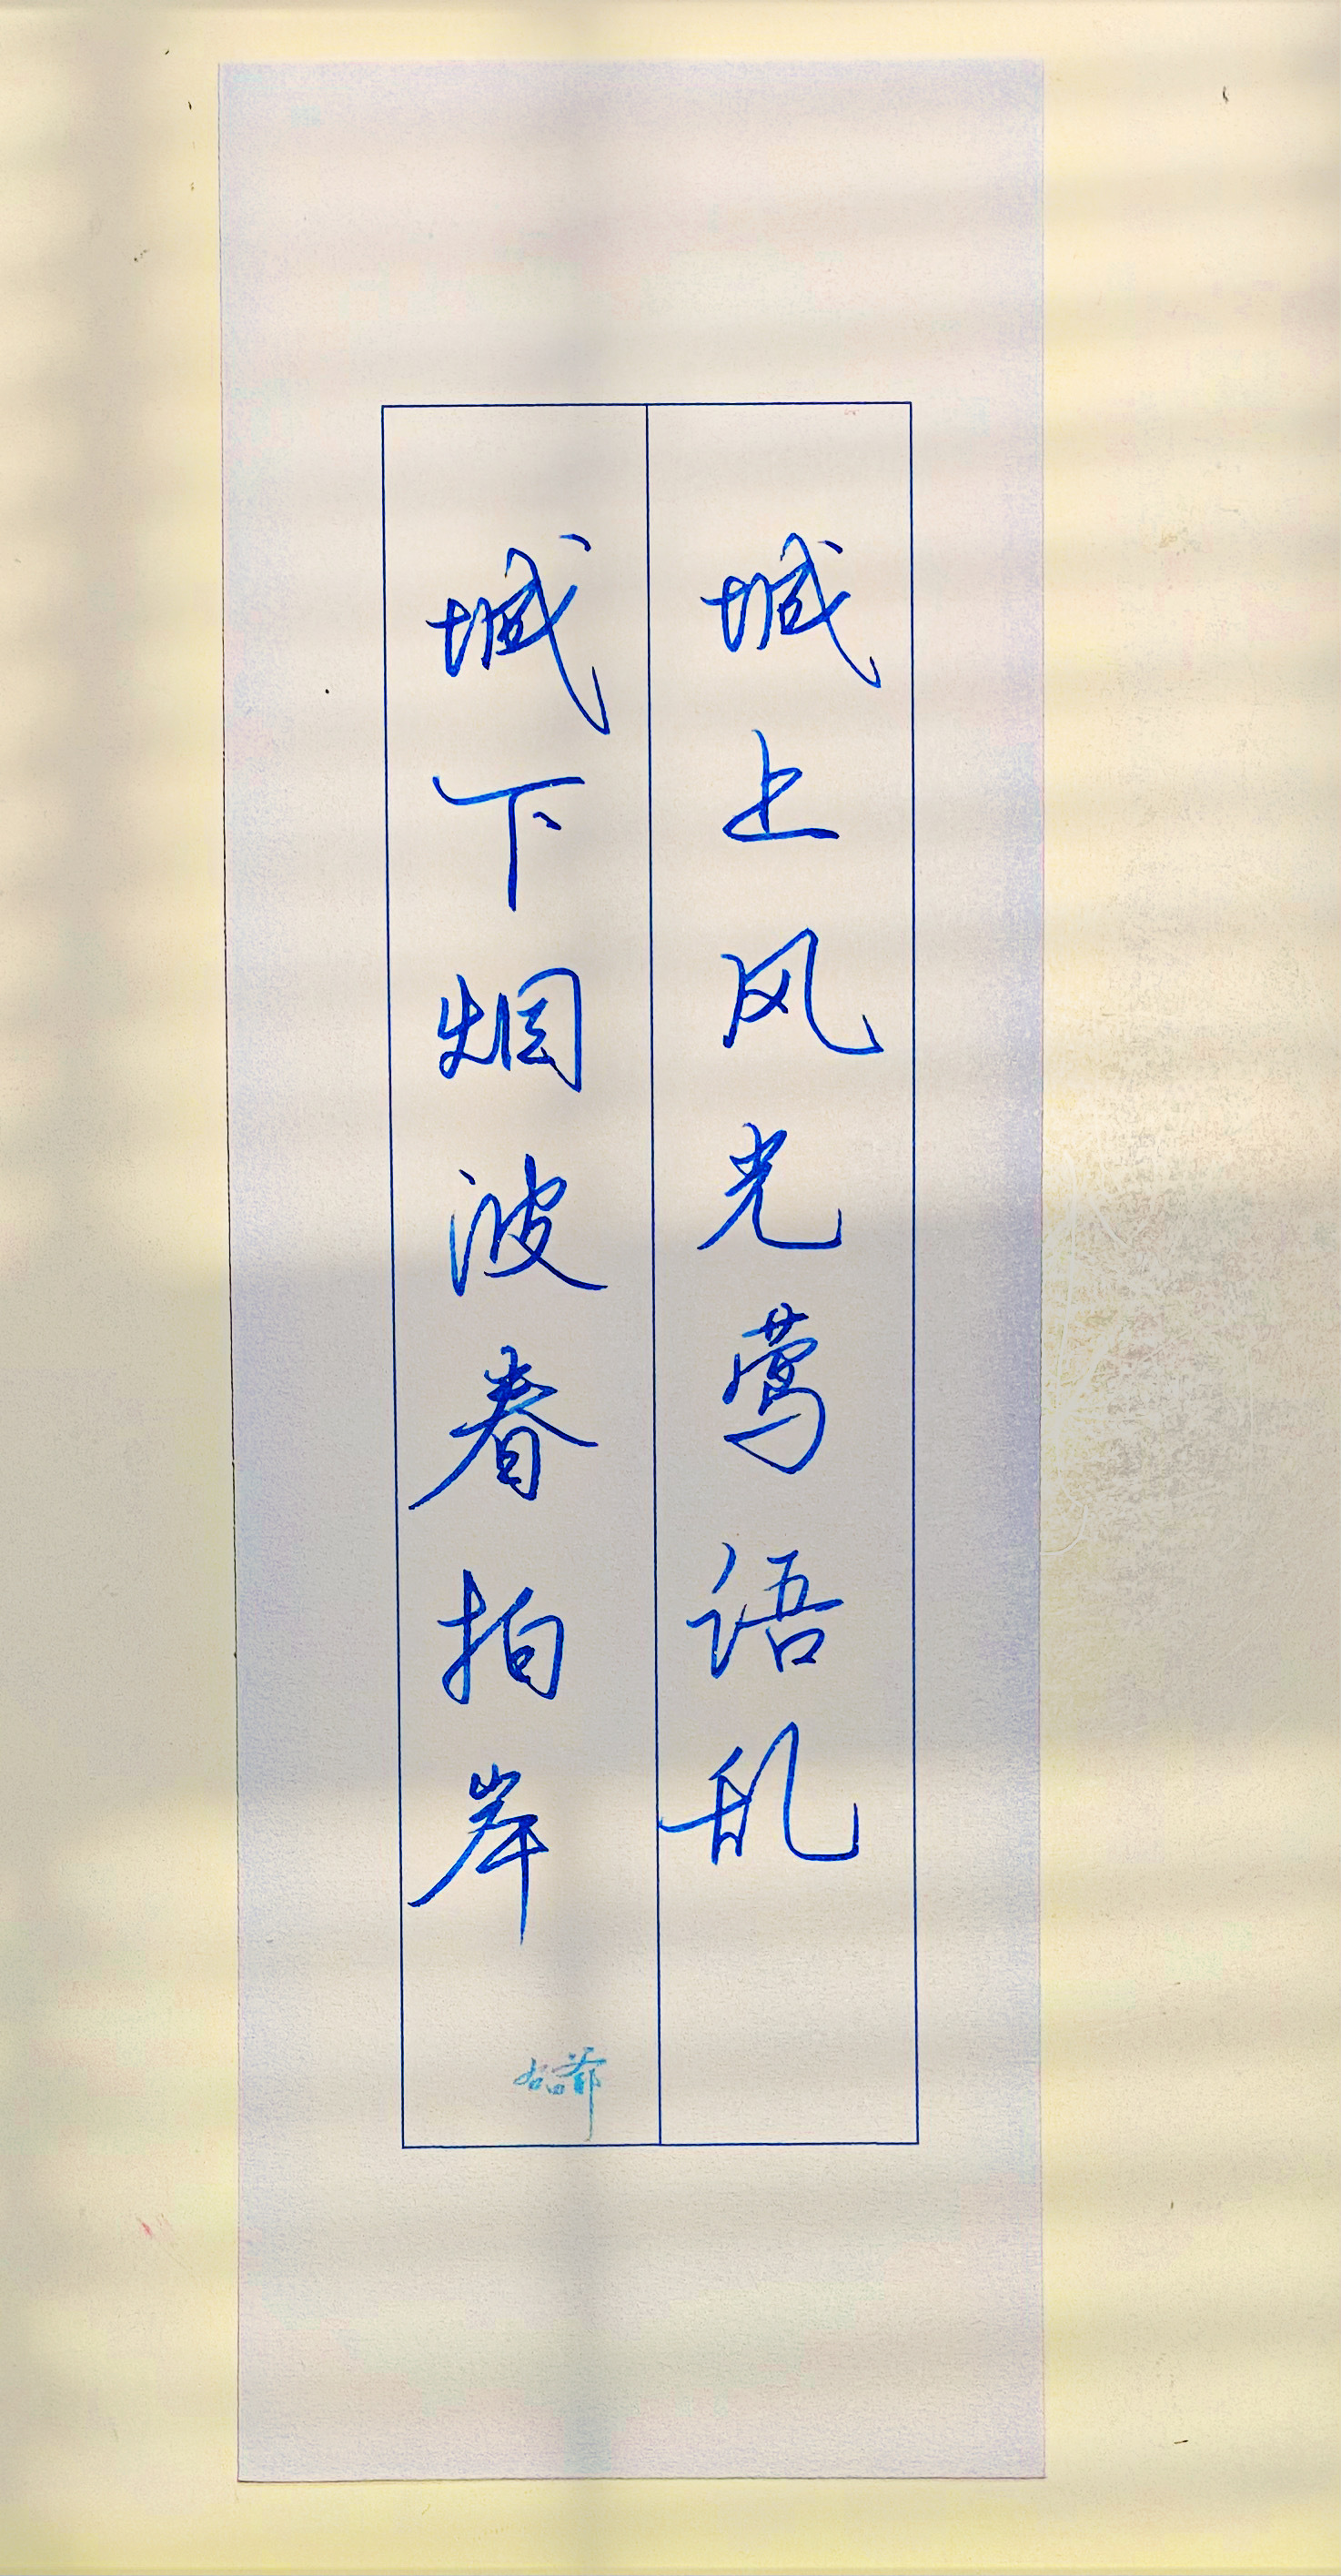 城上风光莺语乱
城下烟波春拍岸